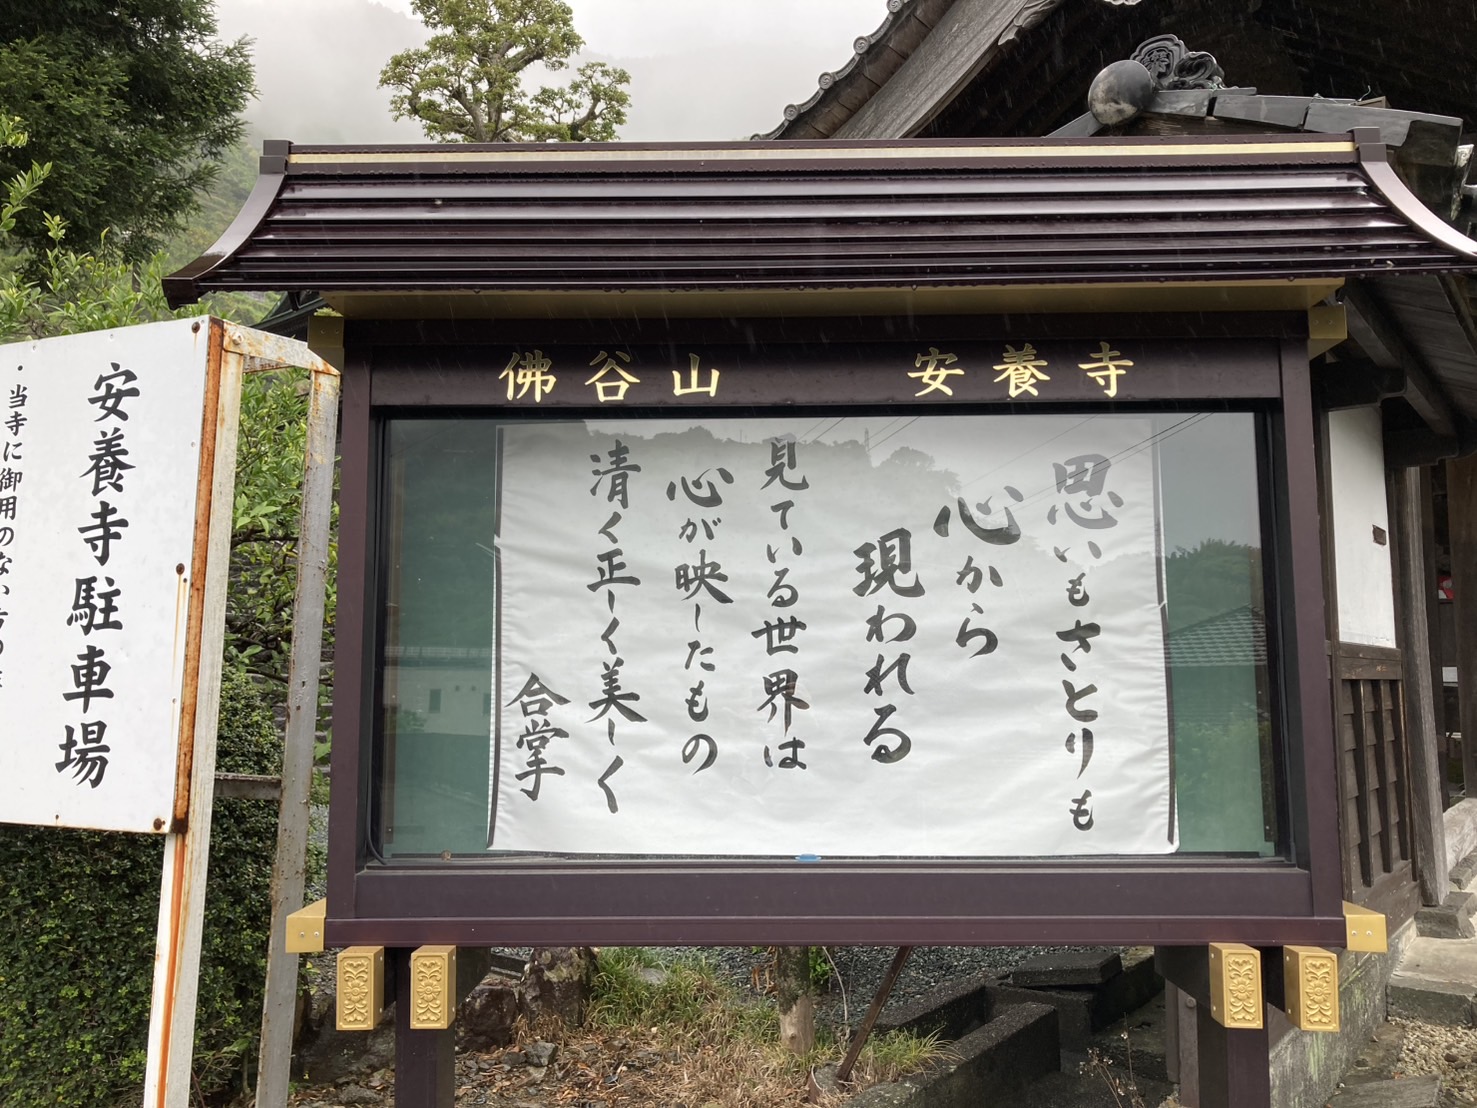 佛谷山 安養寺
思いもさとりも
心から
現われる
見ている世界は
心が映したもの
清く正しく美しく
合掌
安養寺駐車場
・当寺に御用のない方の